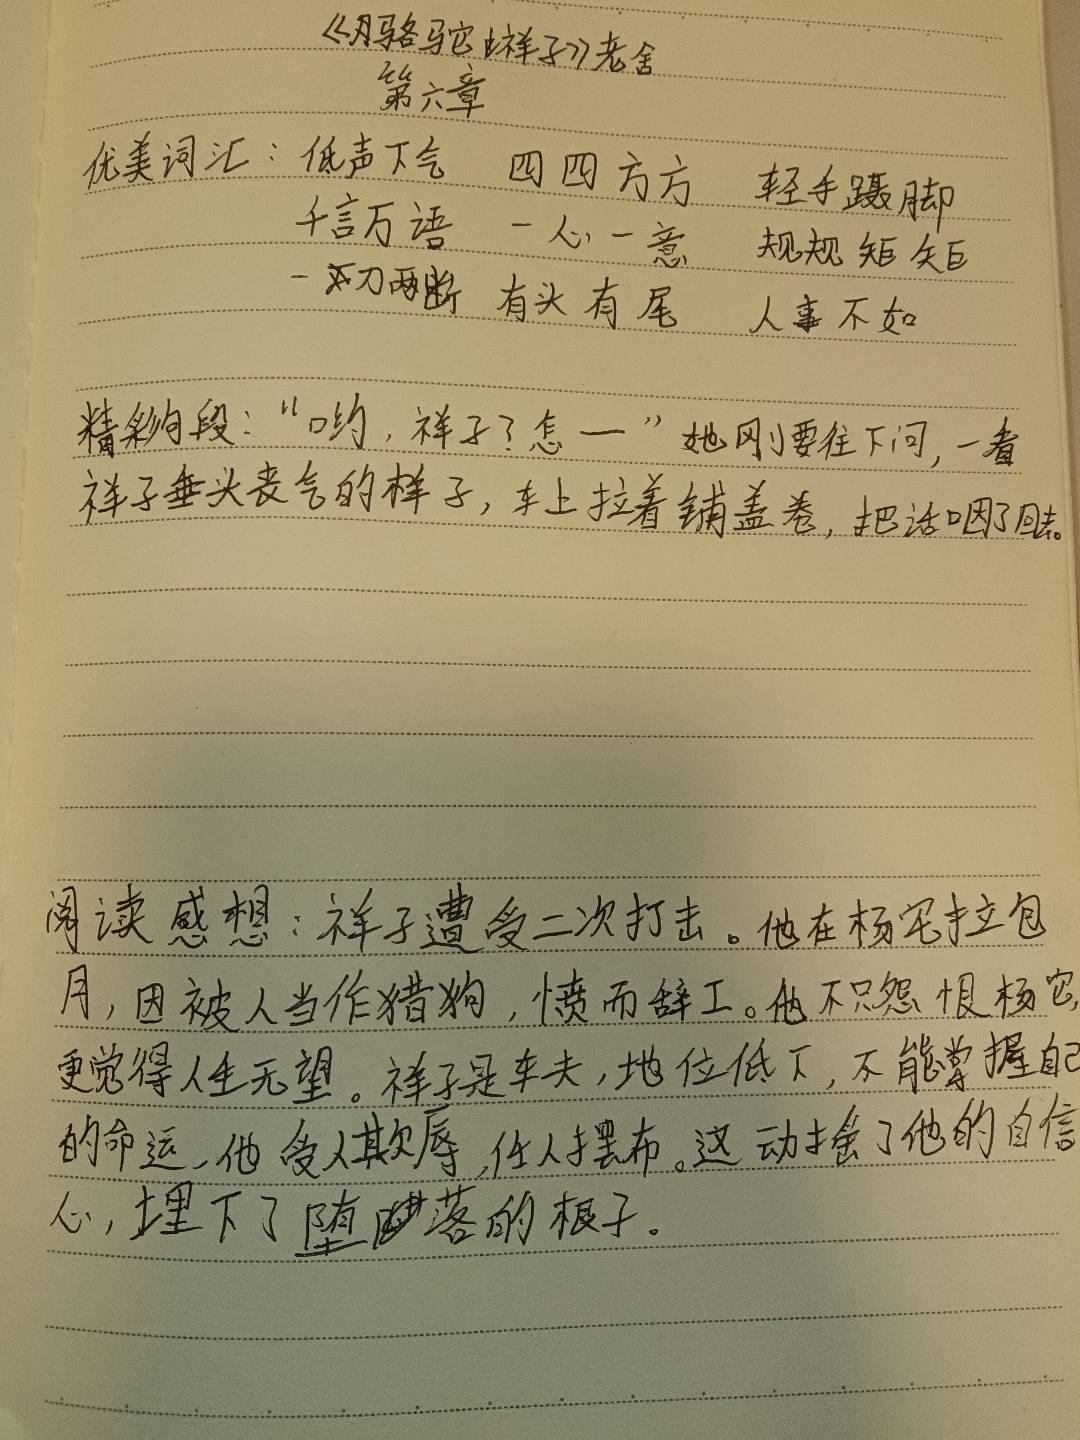 《骆驼祥子》老舍
第六章
优美词汇：低声下气 四四方方 轻手蹑脚
千言万语 一心一意 规规矩矩
一刀两断 有头有尾 人事不如
精彩句段：“哟，祥子？怎一”她刚要往下问，一看
祥子垂头丧气的样子，车上拉着铺盖卷，把话咽了回去。
阅读感想：祥子遭受二次打击。他在杨宅拉包
月，因被人当作猎狗，愤而辞工。他不只怨恨杨宅，
更觉得人生无望。祥子是车夫，地位低下，不能掌握自己
的命运，他受人欺辱，任人摆布。这动摇了他的自信
心，埋下了堕落的根子。